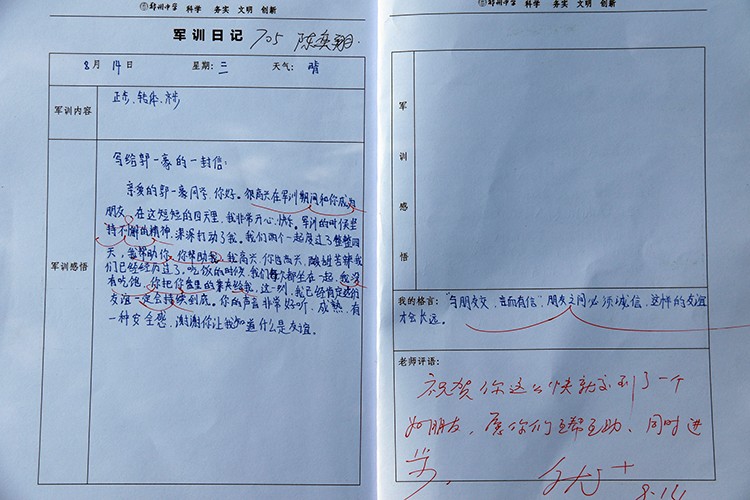 郑州中学 科学 务实 文明 创新
军训日记 705 陈奕翔
8月14日 星期:二 天气:晴
军训内容
正步、转体、齐步
军训感悟
写给郭一豪的一封信:
亲爱的郭一豪同学,你好。很高兴在军训期间和你成为
朋友。在这短短的四天里,我非常开心、快乐。军训的时候坚
持不懈的精神,深深打动了我。我们两个一起度过了整整四
天,我帮助你,你帮助我,我高兴,你也高兴,酸甜苦辣我
们已经经历过了。吃饭的时候,我们每次都坐在一起,我没
有吃饱,你把你盘里的菜夹给我,这一刻,我已经肯定我们
友谊一定会持续到底。你的声音非常好听,成熟,有
一种安全感,谢谢你让我知道什么是友谊。
郑州中学 科学 务实 文明 创新
军训感悟
我的格言:“与朋友交,言而有信”,朋友之间必须诚信,这样的友谊
才会长远。
老师评语:
祝贺你这么快就交到了一个
好朋友,愿你们互帮互助、同时进
步。
8.14